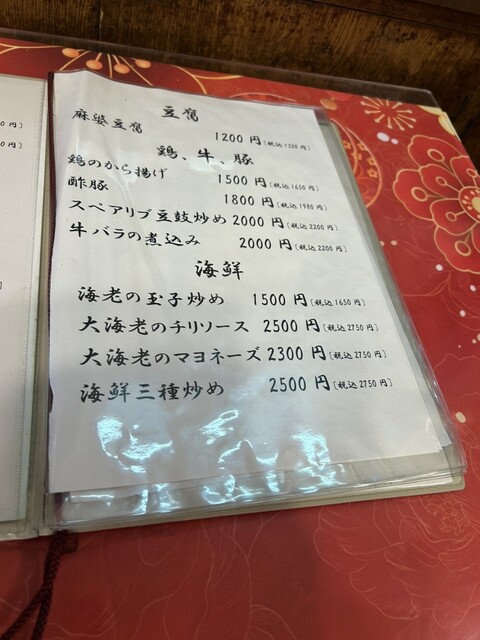 0 円〕
0 円〕
豆腐
麻婆豆腐 1200 円〔税込 1320 円〕
鶏、牛、豚
鶏のから揚げ 1500 円〔税込 1650 円〕
酢豚 1800 円〔税込 1980 円〕
スペアリブ豆鼓炒め 2000 円〔税込 2200 円〕
牛バラの煮込み 2000 円〔税込 2200 円〕
海鮮
海老の玉子炒め 1500 円〔税込 1650 円〕
大海老のチリソース 2500 円〔税込 2750 円〕
大海老のマヨネーズ 2300 円〔税込 2750 円〕
海鮮三種炒め 2500 円〔税込 2750 円〕